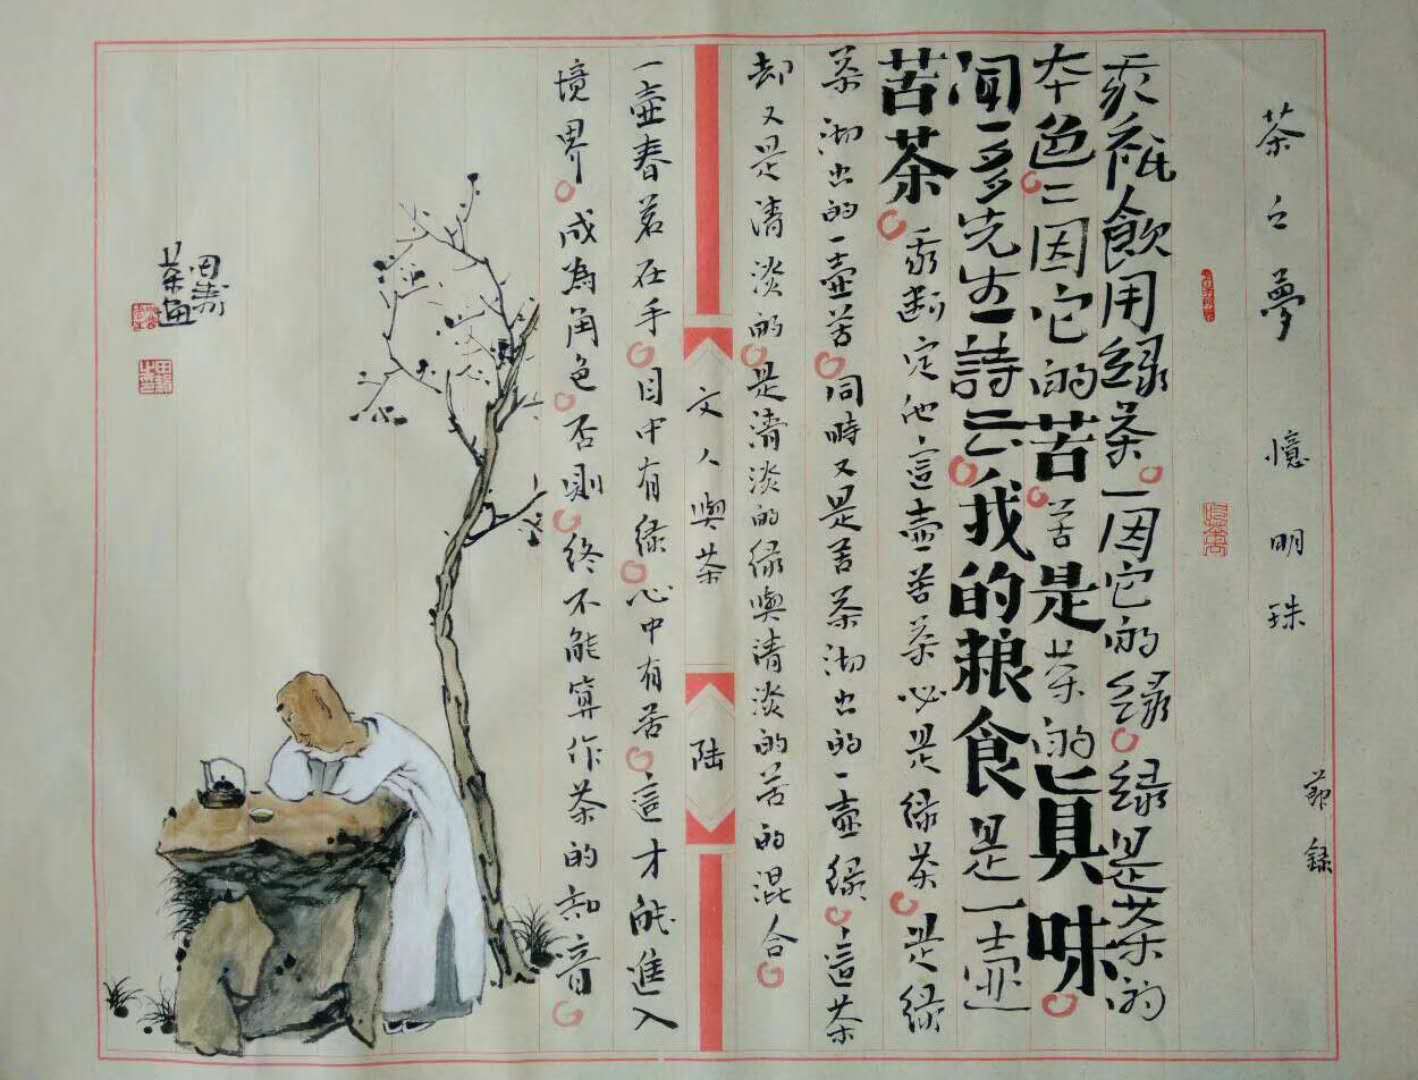 茶之夢 憶明珠
節錄
我衹飲用綠茶。一因它的綠。綠是茶的
本色。二因它的苦。苦是茶的真味。
闻一多先生詩云。我的粮食是一壺
苦茶。我斷定他這壺苦茶必是绿茶。是绿
茶沏出的一壺苦。同時又是苦茶沏出的一壺绿。這茶
却又是清淡的。是清淡的绿與清淡的苦的混合。
文人與茶
陆
一壺春茗在手。目中有绿。心中有苦。這才能進入
境界。成為角色。否則。終不能算作茶的知音。